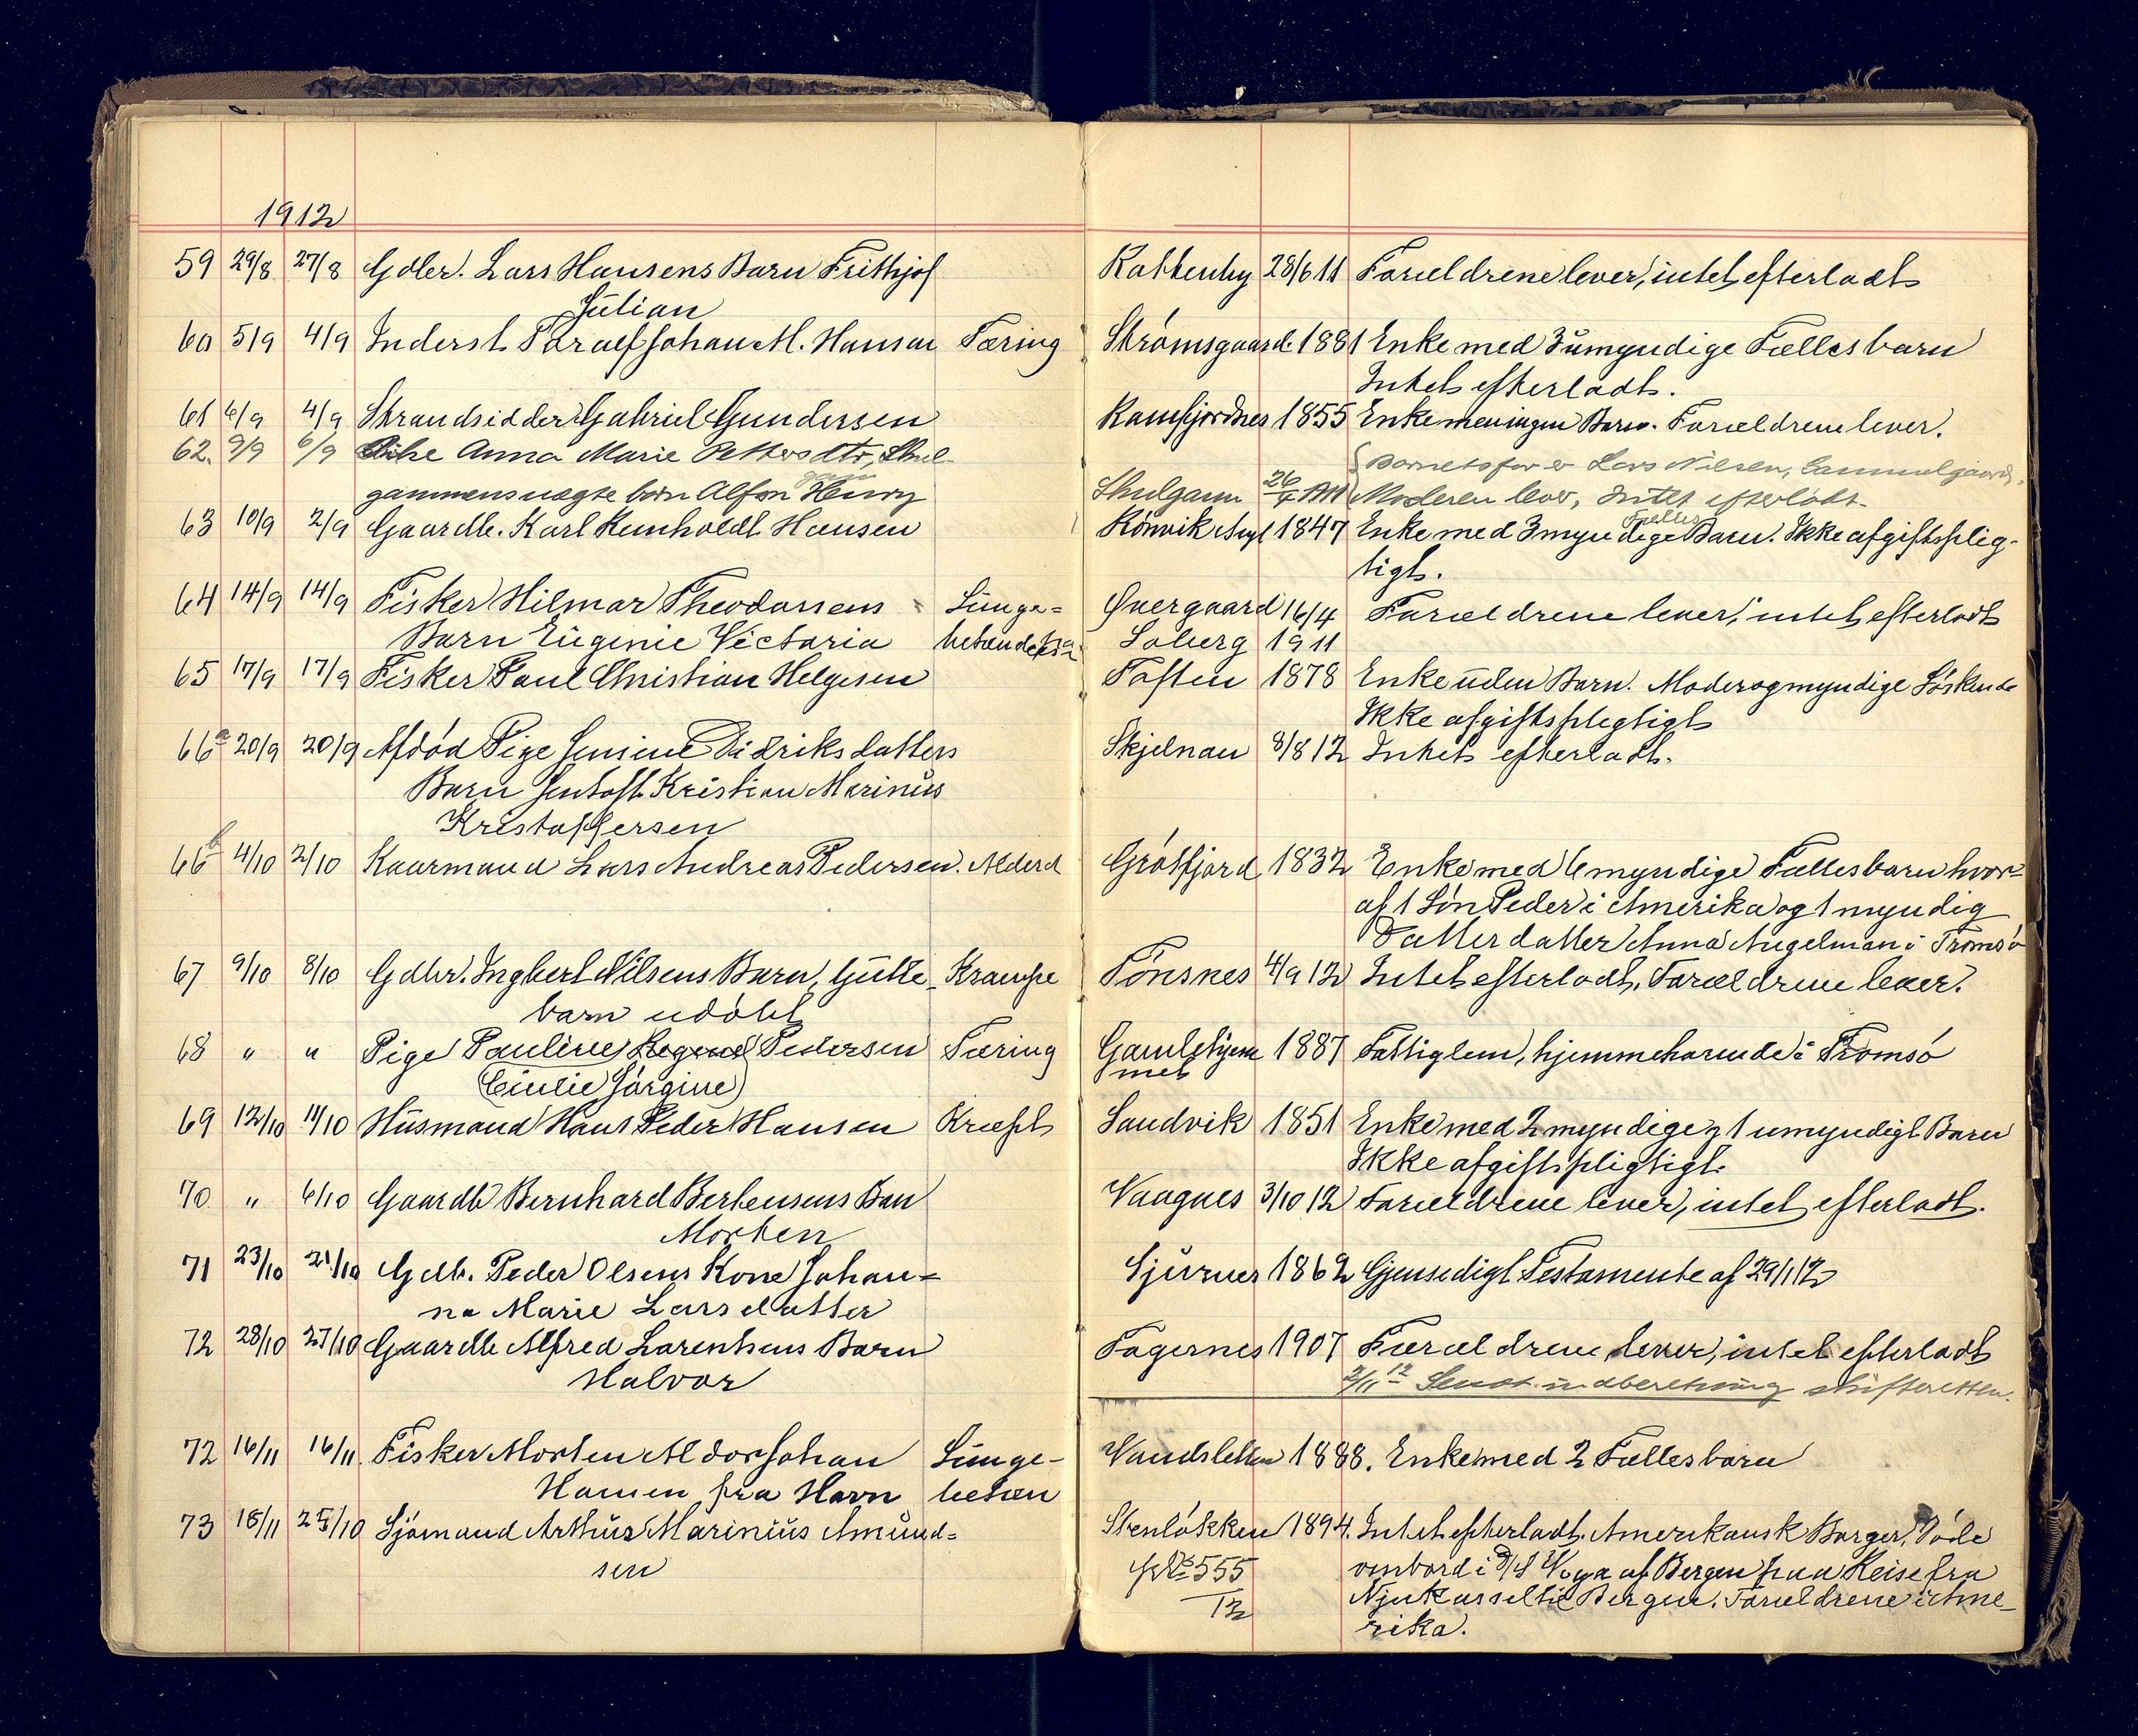 1912
59 29/8 27/8 Gdbr. Lars Hansens Barn Frithjof Kattenby 28/6 11 Forældrene lever, intet efterladt
Julian
60 5/9 4/9 Inderst Toralf Johan M. Hansen Tæring Strømsgaard 1881 Enke med 3 umyndige Fællesbarn
Intet efterladt.
61 6/9 4/9 Strandsidder Gabriel Gundersen Ramfjordnes 1855 Enke men ingen Barn. Forældrene lever.
62. 9/9 6/9 Pike Anna Marie Pettersdtr, Skul- Barnets far er Lars Nilsen, Gammelgaard,
gammens uægte barn Alfon Henry Skulgam 26/4 1911 Moderen lever, Intet efterladt.
63 10/9 2/9 Gaardb. Karl Reinholdt Hansen Kónvik 1847 Enke med 3 myndige Fælles Barn. Ikke afgiftsplig-
tigt.
64 14/9 14/9 Fisker Hilmar Theodorsens Lunge= Qvergaard 16/4 Forældrene lever, intet efterladt
Barn Eugenie Victoria betændelse Solberg 1911
65 17/9 17/9 Fisker Paul Christian Helgesen Toften 1878 Enke uden Barn. Moder og myndige Søskende
Ikke afgiftspligtigt
66a 20/9 20/9 Afdød Pige Jensine Didriksdatters Skjelnan 8/8 12 Intet efterladt.
Barn Jentoft Kristian Marinus
Kristoffersen
66b 4/10 2/10 Kaarmand Lars Andreas Pedersen. Alderd Gròtfjord 1832 Enke med 6 myndige Fællesbarn hvor=
af 1 Søn Peder i Amerika og 1 myndig
Datterdatter Anna Angelman i Tromsø
67 9/10 8/10 Gdbr. Ingbert Nilsens Barn, Gutte- Krampe Tønsnes 4/9 12 Intet efterladt, Forældrene lever.
barn udøbt
68 " " Pige Pauline Regine Pedersen Tæring Gamlehjem 1887 Fattiglem, hjemmehørende i Tromsø
(Emilie Jørgine) met
69 12/10 11/10 Husmand Hans Peder Hansen Kræft Sandvik 1851 Enke med 2 myndige og 1 umyndigt Barn
Ikke afgiftspligtigt.
70 " 6/10 Gaardb Bernhard Berteusens Ban Vaagnes 3/10 12 Forældrene lever, intet efterladt.
Morten
71 23/10 21/10 Gdb. Peder Olsens Kone Johan= Sjursnes 1862 Gjensidigt Testamente af 29/1 12
na Marie Larsdatter
72 28/10 27/10 Gaardb Alfred Lorentsens Barn Fagernes 1907 Forældrene lever, intet efterladt
Halvor 2/11 12 Sendt indberetning skifteretten.
72 16/11 16/11 Fisker Morten Aldor Johan Lunge- Vandsletten 1888. Enke med 2 Fællesbarn
Hansen fra Havn betæn
73 18/11 25/10 Sjømand Arthur Marinius Amund= Stenløkken 1894. Intet efterladt. Amerikansk Borger. Døde
sen No 555 ombord i D/S Voga af Bergen paa Reise fra
12 Njukassel til Bergen. Forældrene i Ame-
rika.